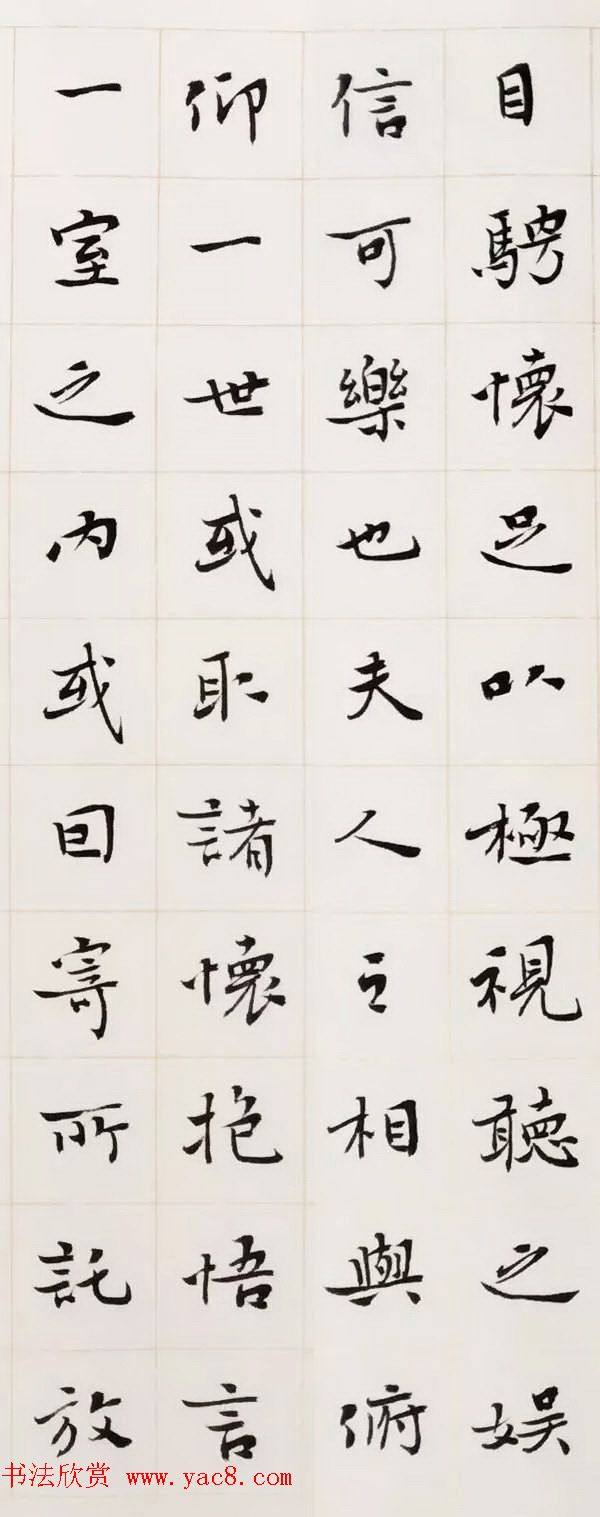 目騁懷足以極視聽之娱
信可樂也夫人之相與俯
仰一世或取諸懷抱悟言
一室之内或因寄所託放
书法欣赏 www.yac8.com